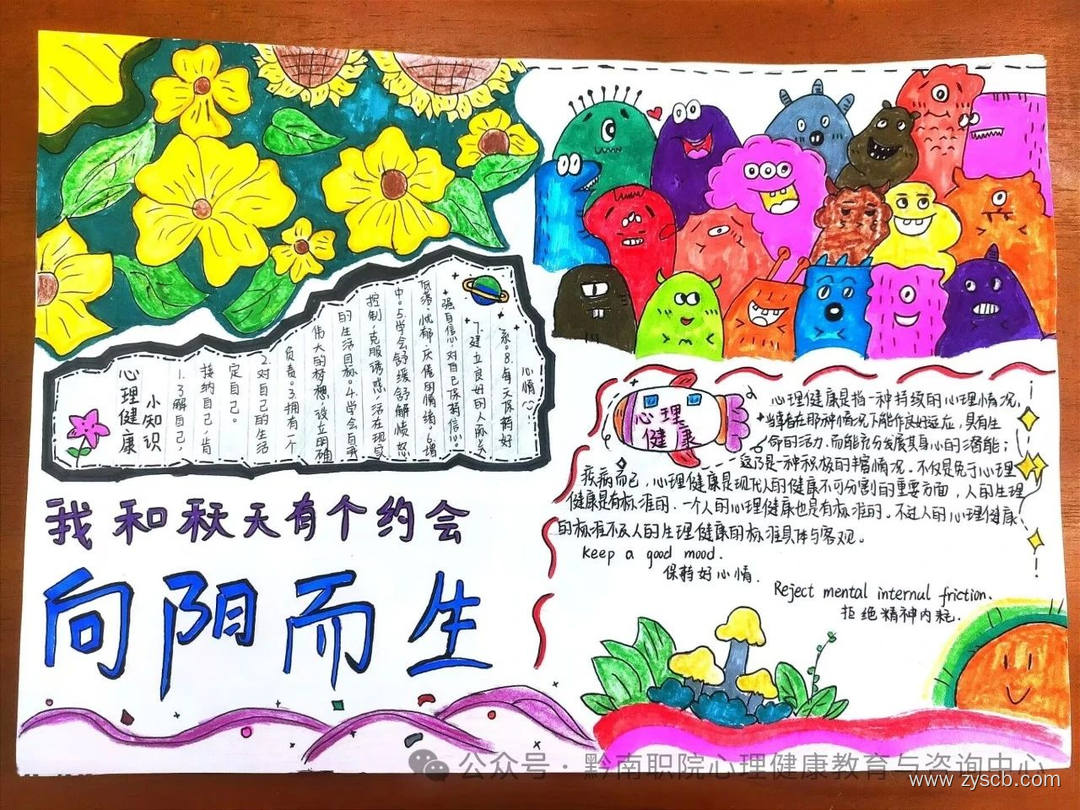 心理健康
小知识
1.了解自己,
接纳自己,肯
定自己。
2.对自己的生活
负责。3.拥有一个
伟大的梦想,设立明确
的生活目标。4.学会自我
控制,克服诱惑,活在现实
中。5.学会舒缓、舒解愤怒
低落、忧郁、厌倦的情绪。6.增
强自信,对自己保持信心。
7.建立良好的人际关
系。8.每天保持好
心情
我和秋天有个约会
向阳而生
心理
健康
心理健康是指一种持续的心理情况,
当事者在那种情况下能作良好适应,具有生
命的活力,而能充分发展其身心的潜能;
这乃是一种积极的丰富情况,不仅是免于心理
疾病而已,心理健康是现代人的健康不可分割的重要方面,人的生理
健康是有标准的,一个人的心理健康也是有标准的。不过人的心理健康
的标准不及人的生理健康的标准具体与客观。
keep a good mood.
保持好心情.
Reject mental internal friction.
拒绝精神内耗.
公众号·黔南职院心理健康教育与咨询中心
www.zyscb.com